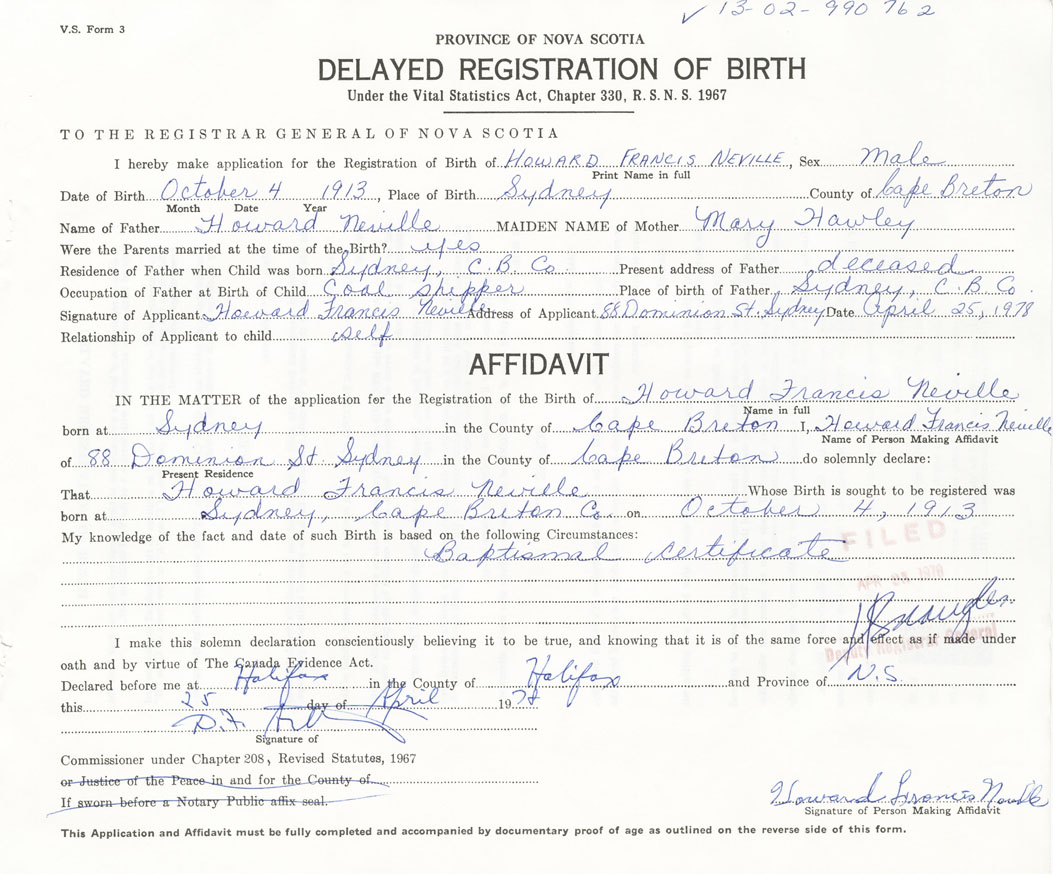 ✓ 13-02-990762
V.S. Form 3
PROVINCE OF NOVA SCOTIA
DELAYED REGISTRATION OF BIRTH
Under the Vital Statistics Act, Chapter 330, R. S. N. S. 1967
TO THE REGISTRAR GENERAL OF NOVA SCOTIA
I hereby make application for the Registration of Birth of HOWARD FRANCIS NEVILLE, Sex Male
Print Name in full
Date of Birth October 4 1913, Place of Birth Sydney County of Cape Breton
Month Date Year
Name of Father Howard Neville MAIDEN NAME of Mother Mary Hawley
Were the Parents married at the time of the Birth? yes
Residence of Father when Child was born Sydney, C.B. Co. Present address of Father deceased
Occupation of Father at Birth of Child Coal shipper Place of birth of Father Sydney, C.B. Co.
Signature of Applicant Howard Francis Neville Address of Applicant 88 Dominion St. Sydney Date April 25, 1978
Relationship of Applicant to child self
AFFIDAVIT
IN THE MATTER of the application for the Registration of the Birth of Howard Francis Neville
Name in full
born at Sydney in the County of Cape Breton I, Howard Francis Neville
Name of Person Making Affidavit
of 88 Dominion St. Sydney in the County of Cape Breton do solemnly declare:
Present Residence
That Howard Francis Neville Whose Birth is sought to be registered was
born at Sydney, Cape Breton Co. on October 4, 1913
My knowledge of the fact and date of such Birth is based on the following Circumstances:
Baptismal Certificate
FILED
APR 25 1978
I make this solemn declaration conscientiously believing it to be true, and knowing that it is of the same force and effect as if made under
Deputy Registrar General
oath and by virtue of The Canada Evidence Act.
Declared before me at Halifax in the County of Halifax and Province of N.S.
this 25 day of April 1978
D.F.
Signature of
Commissioner under Chapter 208, Revised Statutes, 1967
or Justice of the Peace in and for the County of
If sworn before a Notary Public affix seal.
Howard Francis Neville
Signature of Person Making Affidavit
This Application and Affidavit must be fully completed and accompanied by documentary proof of age as outlined on the reverse side of this form.